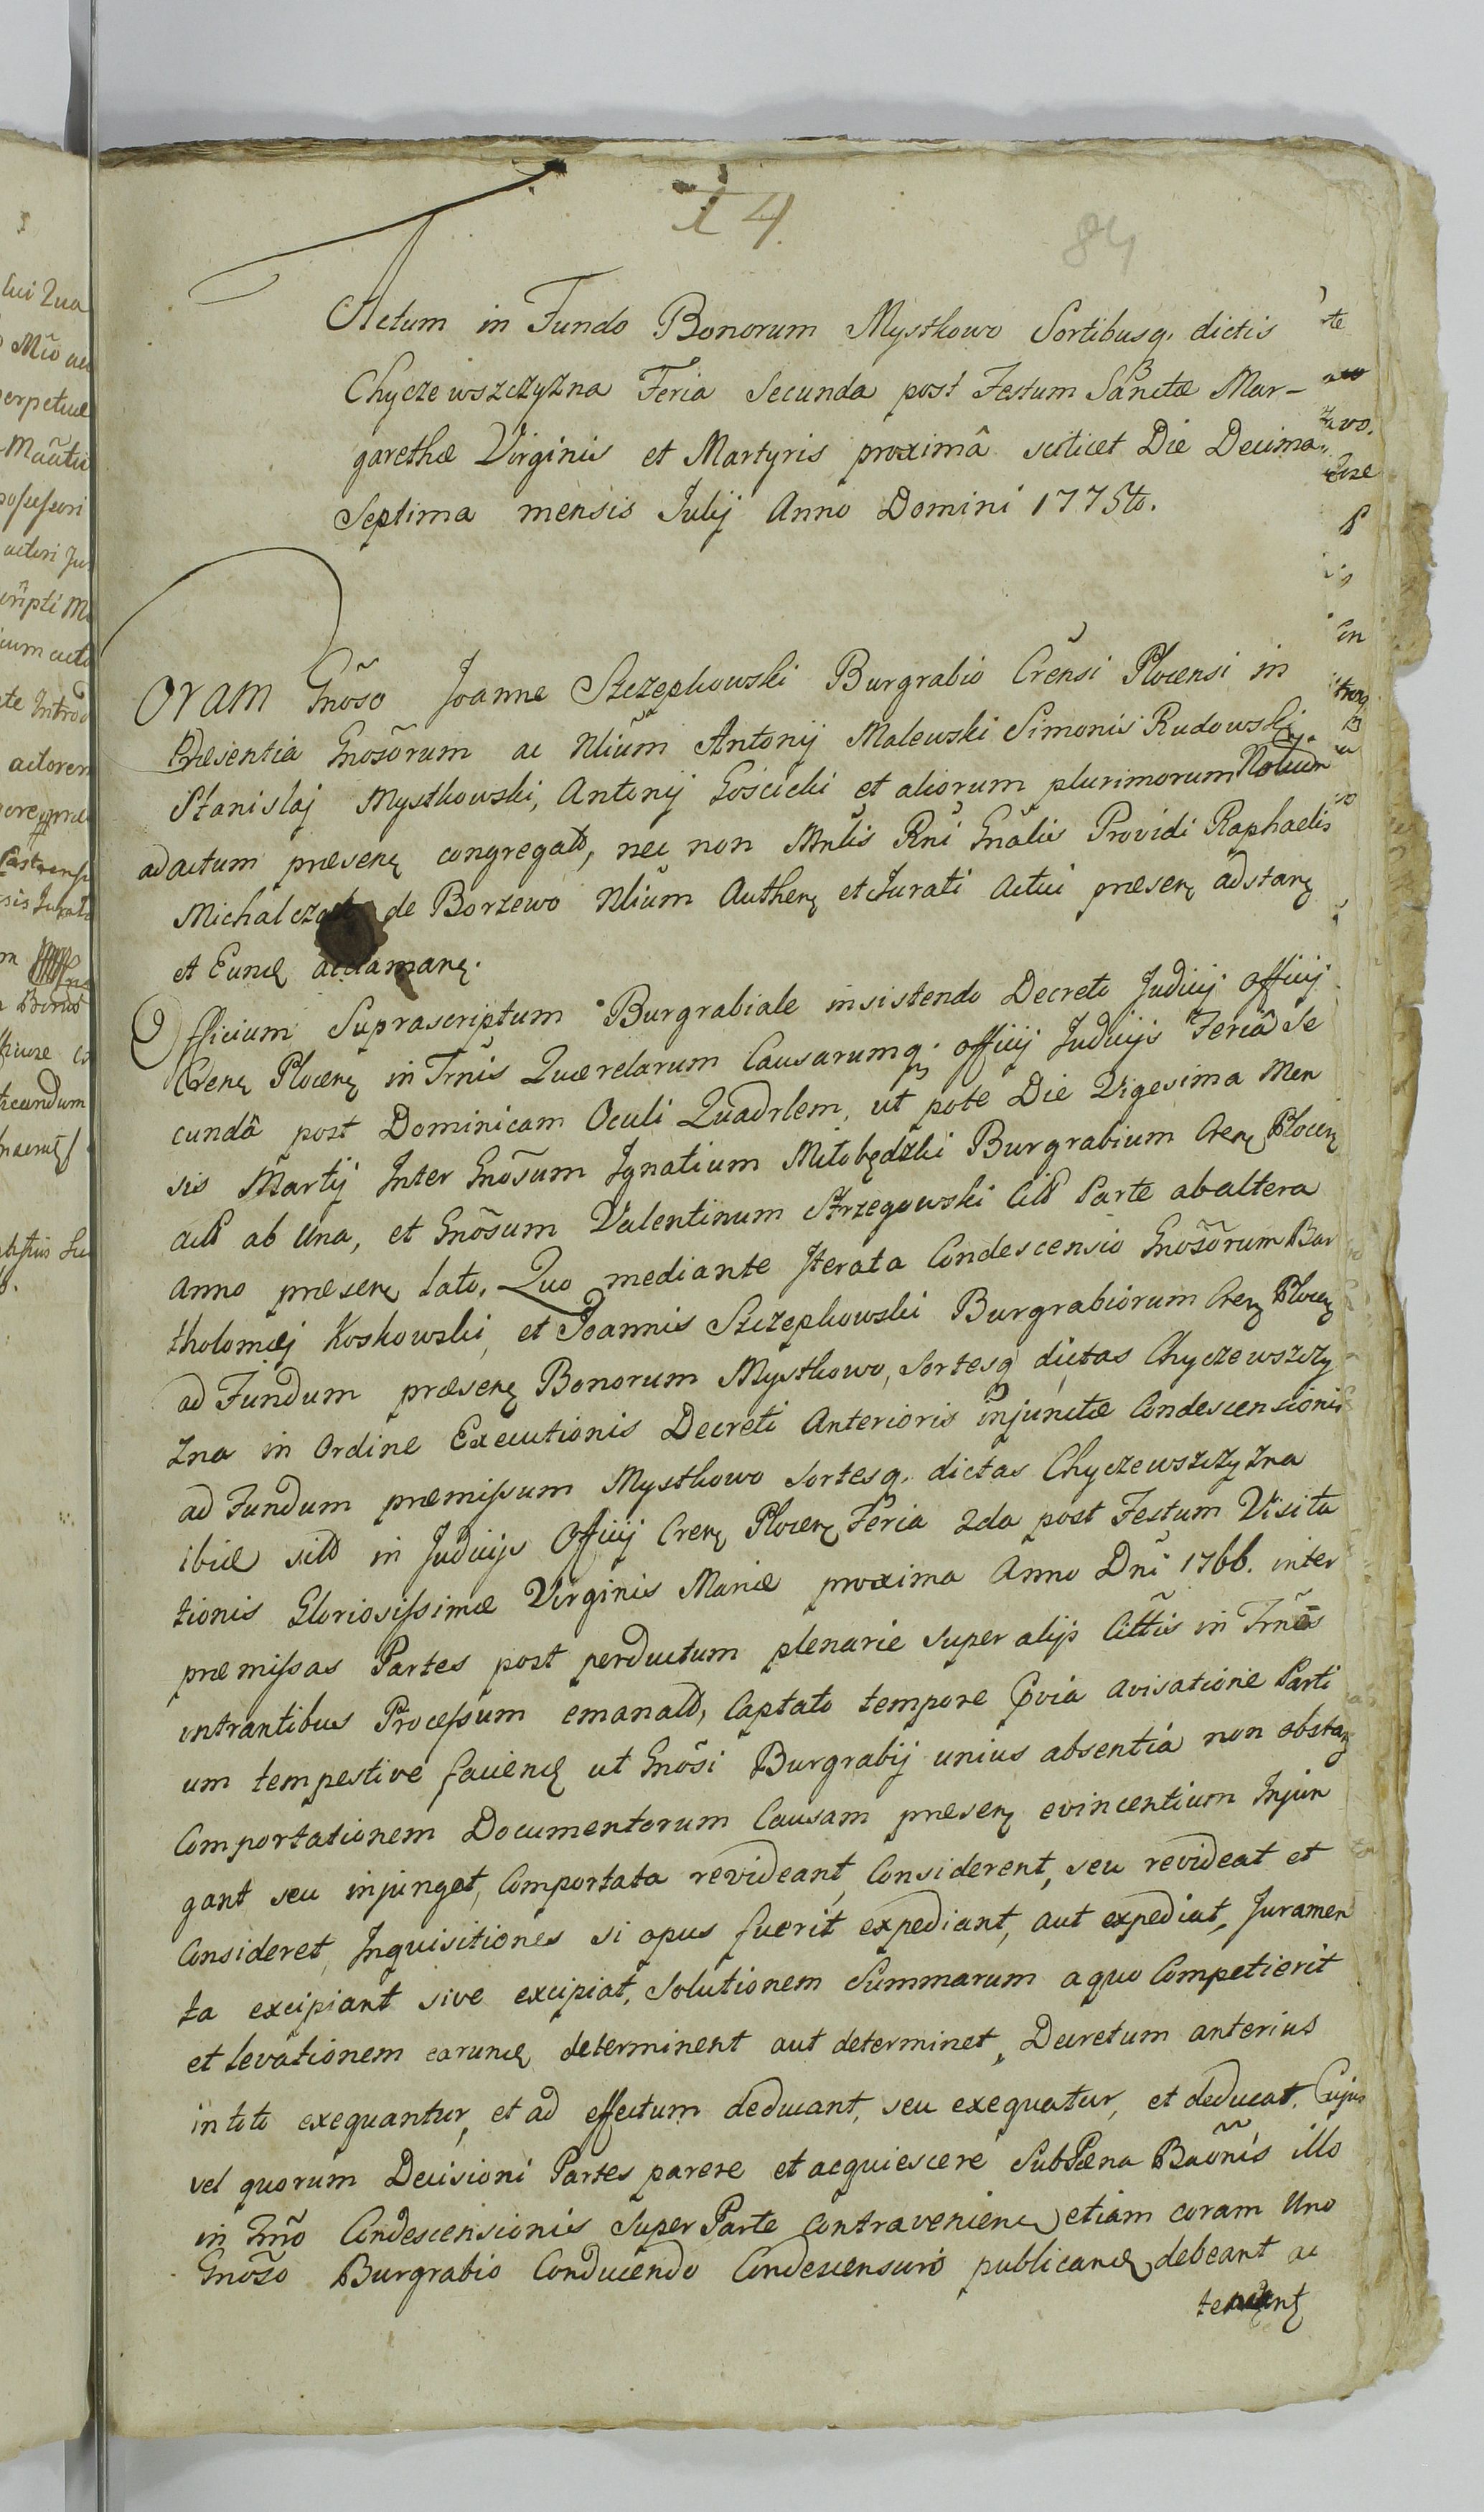 14
84
Actum in Fundo Bonorum Mystkowo Sortibusq. dictis
Chyczewszczyzna Feria Secunda post Festum Sanctæ Mar-
garethæ Virginis et Martyris proximâ scilicet Die Decima
Septima mensis Julij Anno Domini 1775to.
Coram Gnõso Joanne Szczepkowski Burgrabio Crẽnsi Plocensi in
Præsentia Gnosõrum ac Nliũm Antonij Malewski Simonis Rudowski
Stanislaj Mystkowski, Antonij Gościcki et aliorum plurimorum Nobilium
ad actum præsenę congregatõ, nec non Mnlis Rni Gnãlis Providi Raphaelis
Michalczak de Borzewo Nliũm Authenę et Jurati Actui præsenę adstanę
et Eundę acclamanę.
Officium Suprascriptum Burgrabiale insistendo Decreto Judicij officij
Crenę Plocenę in Trnis Querelarum Causarumq. officij Judicijs Feriâ Se
cundâ post Dominicam Oculi Quadrlem, ut pote Die Vigesima Men
sis Martij Inter Gnõsum Ignatium Miłobędzki Burgrabium Crenę Plocenę
Actõ ab Una, et Gnõsum Valentinum Strzegowski Citõ Parte ab altera
Anno præsenę lato. Quo mediante Iterata Condescensio Gnosõrum Bar
tholomæj Koskowski, et Joannis Szczepkowski Burgrabiorum Crenę Plocenę
ad Fundum præsenę Bonorum Mystkowo, Sortesq dictas Chyczewszczy
zna in Ordine Executionis Decreti Anterioris injunctæ Condescensionis
ad Fundum præmissum Mystkowo Sortesq. dictas Chyczewszczyzna
ibidę sitõ in Judicijs Officij Crenę Plocenę Feria 2da post Festum Visita
tionis Gloriosissimæ Virginis Mariæ proxima Anno Dni 1766. inter
præmissas Partes post perductum plenarie super alijs Cittis in Trnõs
intrantibus Processum emanatõ, Captato tempore pvia avisatione Parti
um tempestive faciendę ut Gnõsi Burgrabij unius absentiâ non obstanę
Comportationem Documentorum Causam præsenę evincentium Injun
gant seu injunget, Comportata revideant, Considerent, seu revideat et
Consideret, Inquisitiones si opus fuerit expediant, aut expediat, Juramen
ta excipiant sive excipiat, Solutionem Summarum a quo Competierit
et levationem earundę determinent aut determinet, Decretum anterius
in toto exequantur, et ad effectum deducant, seu exequatur, et deducat. Cujus
vel quorum Decisioni Partes parere et acquiescere Sub Pæna Baõnis illo
in Trnõ Condescensionis Super Parte Contravenienę etiam coram Uno
Gnõso Burgrabio Conducendo Condescensuro publicandę debeant ac